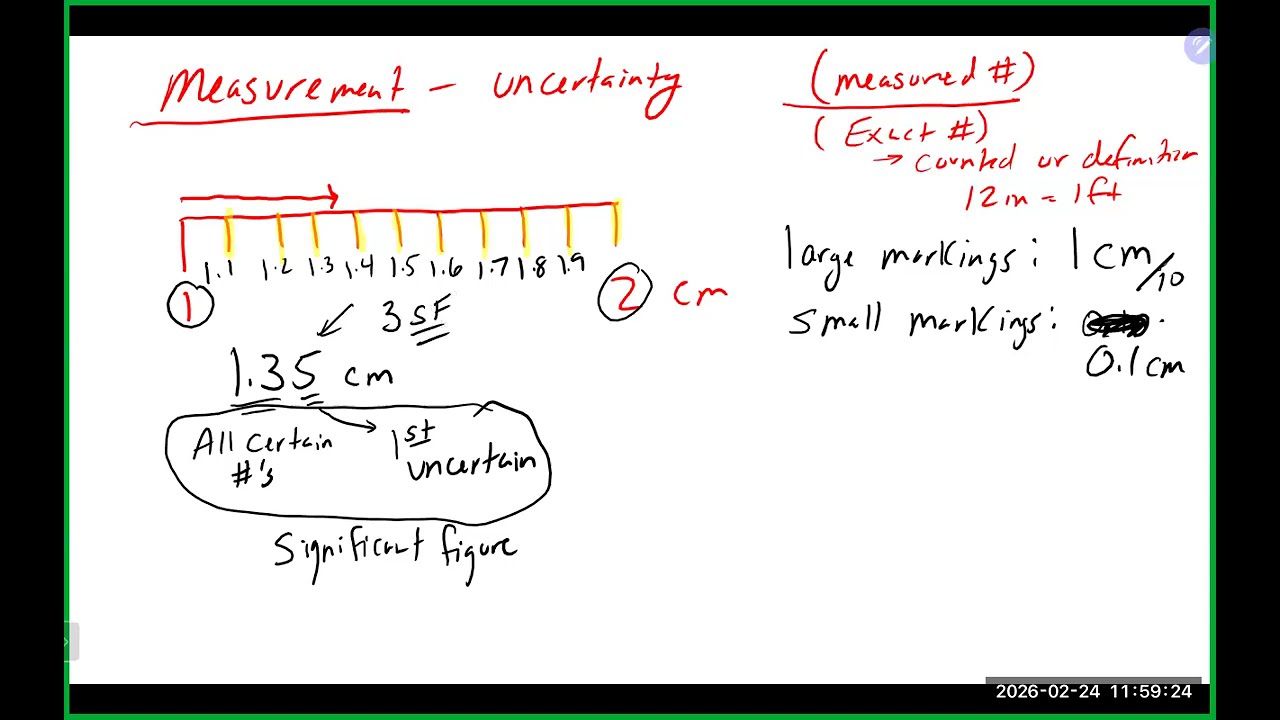 Measurement - uncertainty
(measured #)
(Exact #)
→ counted or definition
12in = 1ft
1.1 1.2 1.3 1.4 1.5 1.6 1.7 1.8 1.9
1 2 cm
large markings: 1cm/10
small markings:
0.1cm
3 SF
1.35 cm
All certain
#'s
1st
uncertain
Significant figure
2026-02-24 11:59:24